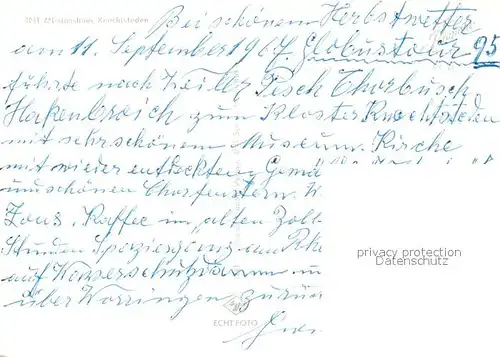 Bei schönem Herbstwetter
am 11. September 1967. Globustour 95
führte nach Weiler Pesch Chorbusch
Hakenbroich zum Kloster Knechtsteden
mit sehr schönem Museum. Kirche
mit wieder entdeckten Gemä
wunschönen Chorfenstern.
Zons. Kaffee im "alten Zoll
Stunden Spaziergang am Rhe
auf Wasserschutzdamm
über Worringen zurü
privacy protection
Datenschutz
ECHT FOTO